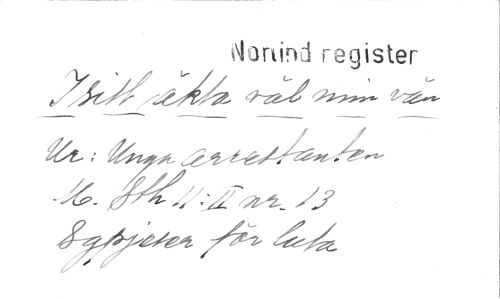 Norlind register
I sitt äkta väl min vän
Ur: Unga arrestanten
M. Sth 11: II nr. 13
för luta